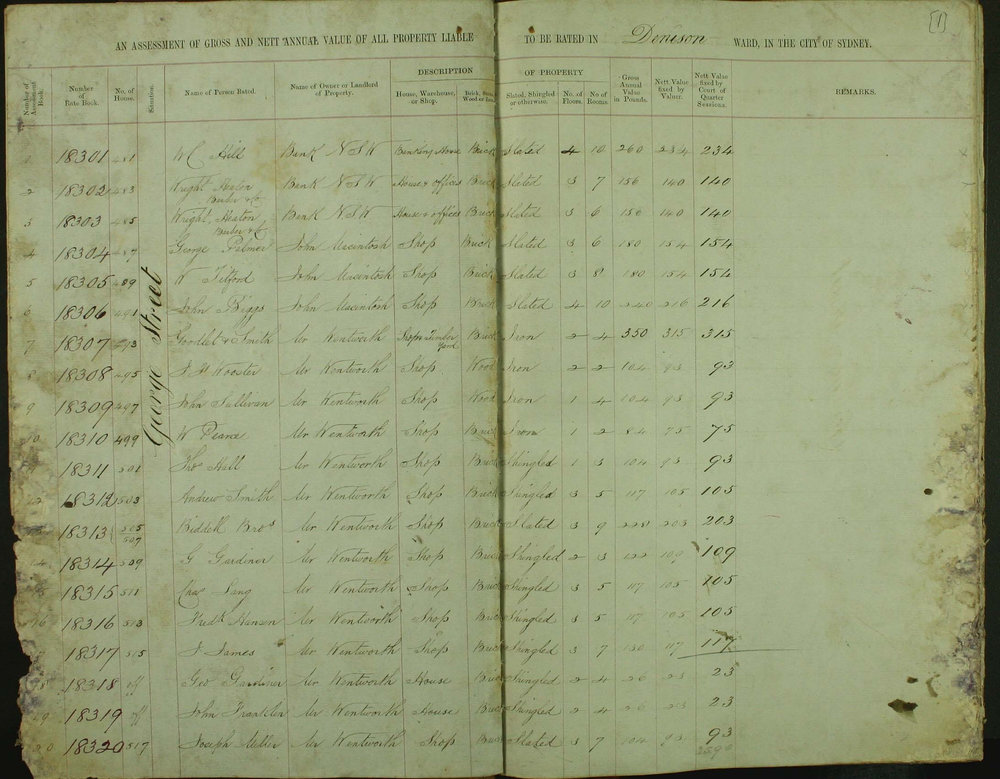 [1]
AN ASSESSMENT OF GROSS AND NETT ANNUAL VALUE OF ALL PROPERTY LIABLE TO BE RATED IN Denison WARD, IN THE CITY OF SYDNEY.
Number of Assessment Book. Number of Rate Book. No. of House. Situation. Name of Person Rated. Name of Owner or Landlord of Property. DESCRIPTION OF PROPERTY House, Warehouse, or Shop. Brick, Stone, Wood or Iron. Slated, Shingled or otherwise. No. of Floors. No of Rooms. Gross Annual Value in Pounds. Nett Value fixed by Valuer. Nett Value fixed by Court of Quarter Sessions. REMARKS.
George Street
1 18301 481 W C Hill Bank NSW Banking House Brick Slated 4 10 260 234 234
2 18302 483 Wright Heaton Bank NSW House & offices Brick Slated 3 7 156 140 140
3 18303 485 Wright Heaton Bank NSW House & offices Brick Slated 3 6 150 140 140
4 18304 487 George Palmer John Macintosh Shop Brick Slated 3 6 180 154 154
5 18305 489 W Titford John Macintosh Shop Brick Slated 3 8 180 154 154
6 18306 491 John Biggs John Macintosh Shop Brick Slated 4 10 240 216 216
7 18307 493 Goodlet & Smith Mr Wentworth Shop & Timber Yard Brick Iron 2 4 350 315 315
8 18308 495 J H Wooster Mr Wentworth Shop Wood Iron 2 2 104 93 93
9 18309 497 John Sullivan Mr Wentworth Shop Wood Iron 1 4 104 93 93
10 18310 499 W Pearce Mr Wentworth Shop Brick Iron 1 2 84 75 75
18311 501 Thos Hall Mr Wentworth Shop Brick Shingled 1 3 104 93 93
12 18312 503 Andrew Smith Mr Wentworth Shop Brick Shingled 3 5 117 105 105
18313 505 507 Biddell Bros Mr Wentworth Shop Brick Slated 3 9 203 203
14 18314 509 G Gardiner Mr Wentworth Shop Brick Shingled 2 3 122 109 109
18315 511 Chas Lang Mr Wentworth Shop Brick Shingled 3 5 117 105 105
16 18316 513 Fredk Hansen Mr Wentworth Shop Brick Shingled 3 5 117 105 105
18317 515 J James Mr Wentworth Shop Brick Shingled 3 7 130 117 117
18 18318 off Geo Gardiner Mr Wentworth House Brick Shingled 2 4 26 23 23
19 18319 off John Franklin Mr Wentworth House Brick Shingled 2 4 26 23 23
20 18320 517 Joseph Miller Mr Wentworth Shop Brick Slated 3 7 104 93 93